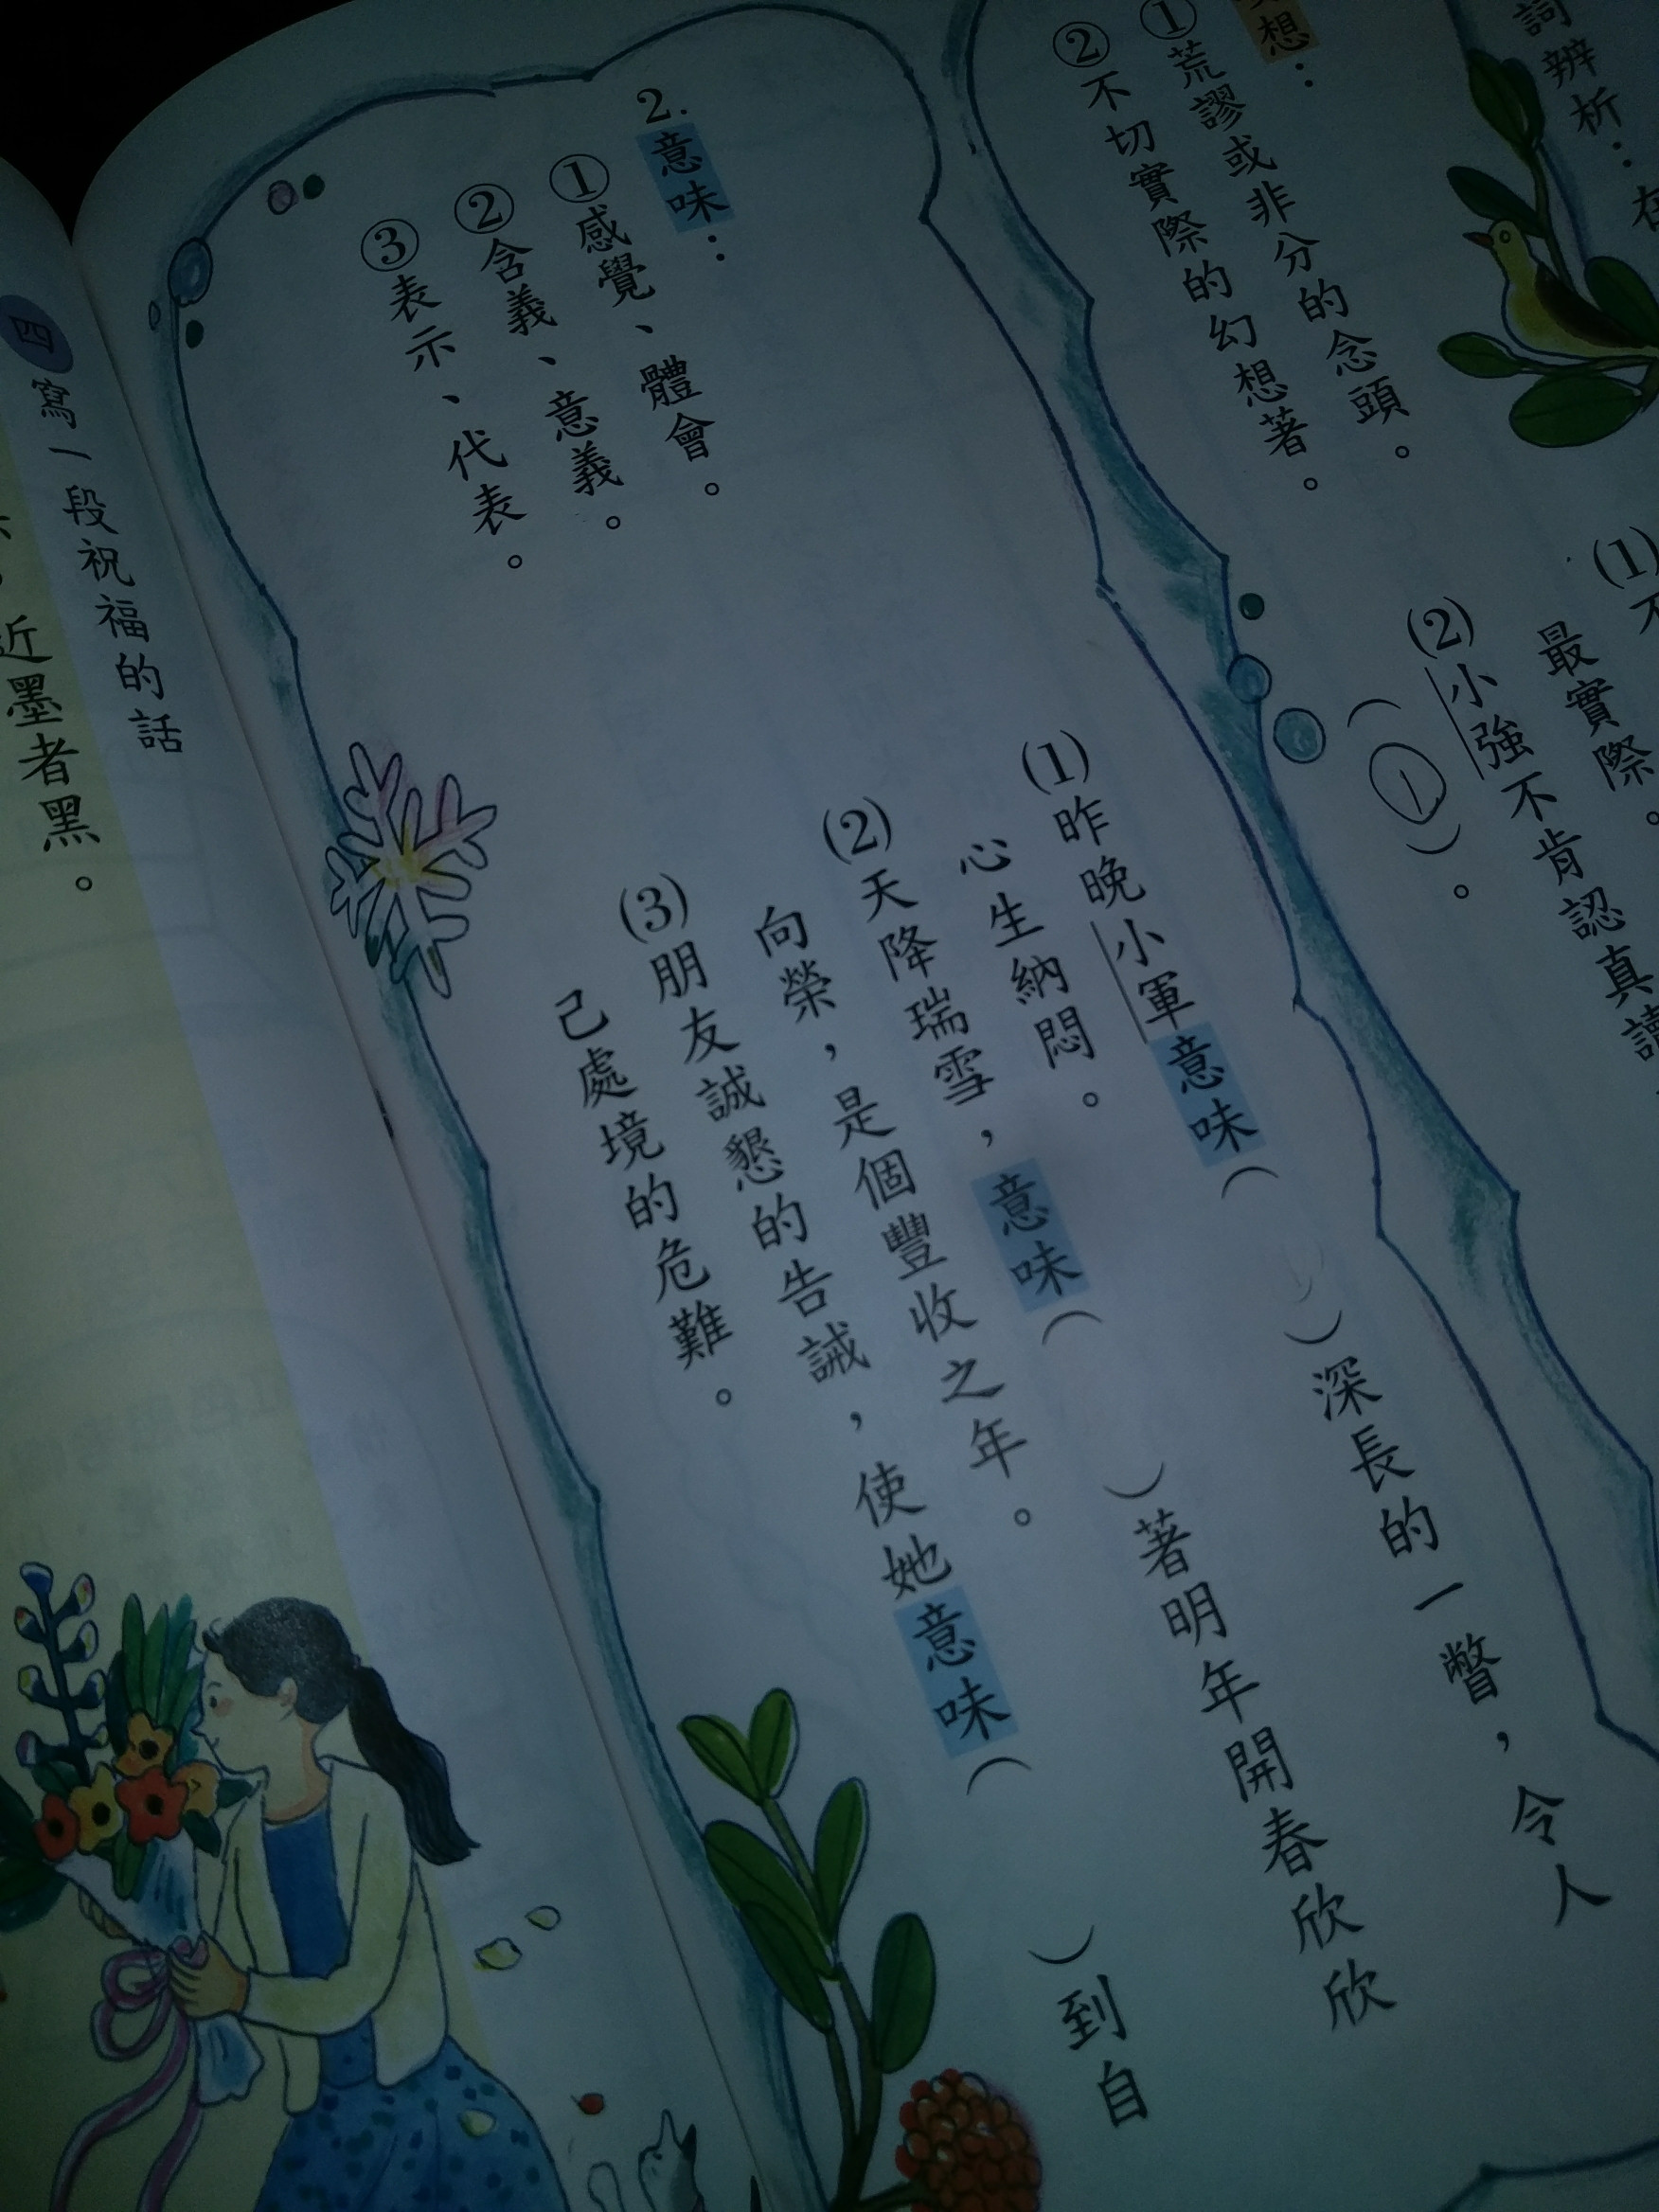 詞辨析：
想：
①荒謬或非分的念頭。
②不切實際的幻想著。
最實際。
(2)小強不肯認真讀
(①)。
2.意味：
①感覺、體會。
②含義、意義。
③表示、代表。
(1)昨晚小軍意味（）深長的一瞥，令人
心生納悶。
(2)天降瑞雪，意味（）著明年開春欣欣
向榮，是個豐收之年。
(3)朋友誠懇的告誡，使她意味（）到自
己處境的危難。
四 寫一段祝福的話
近墨者黑。